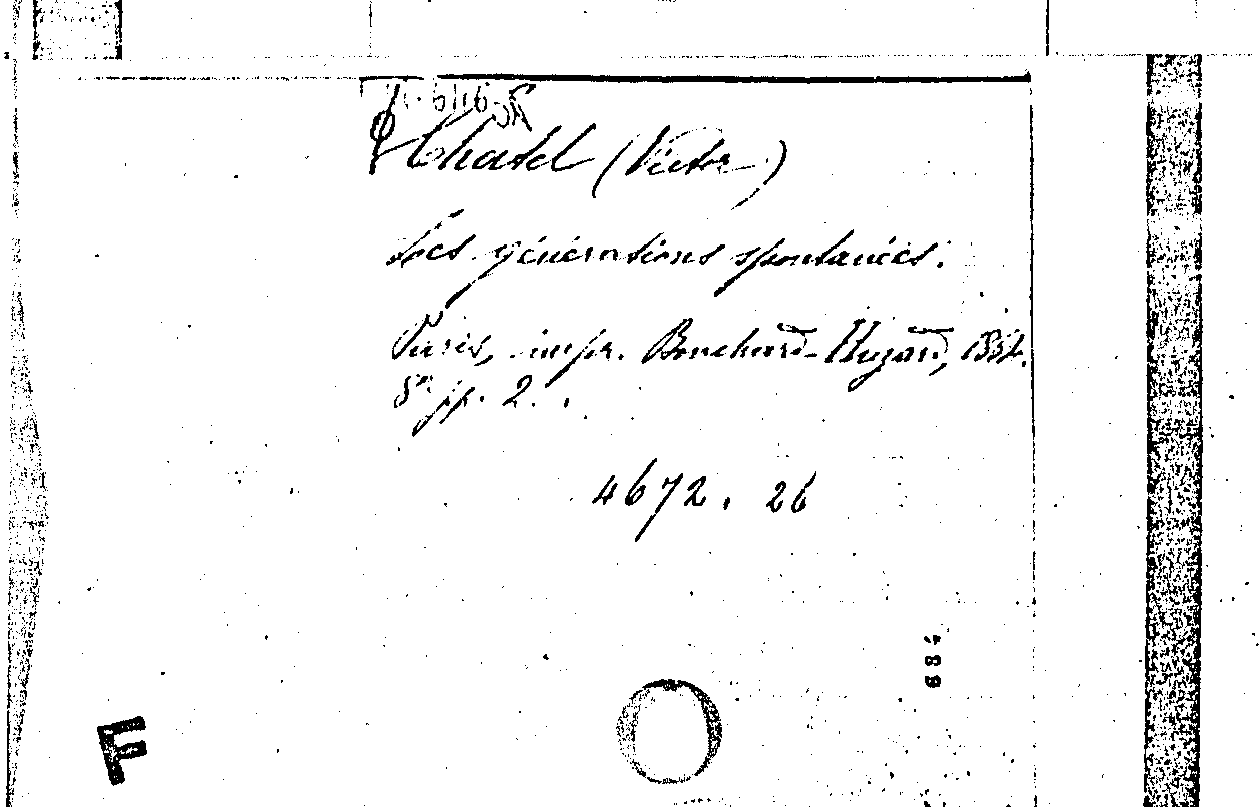 Chatel (Victor)
Les générations spontanées.
Paris, impr. Bouchard-Huzard,
8° pp. 2.
4672. 26
489
F